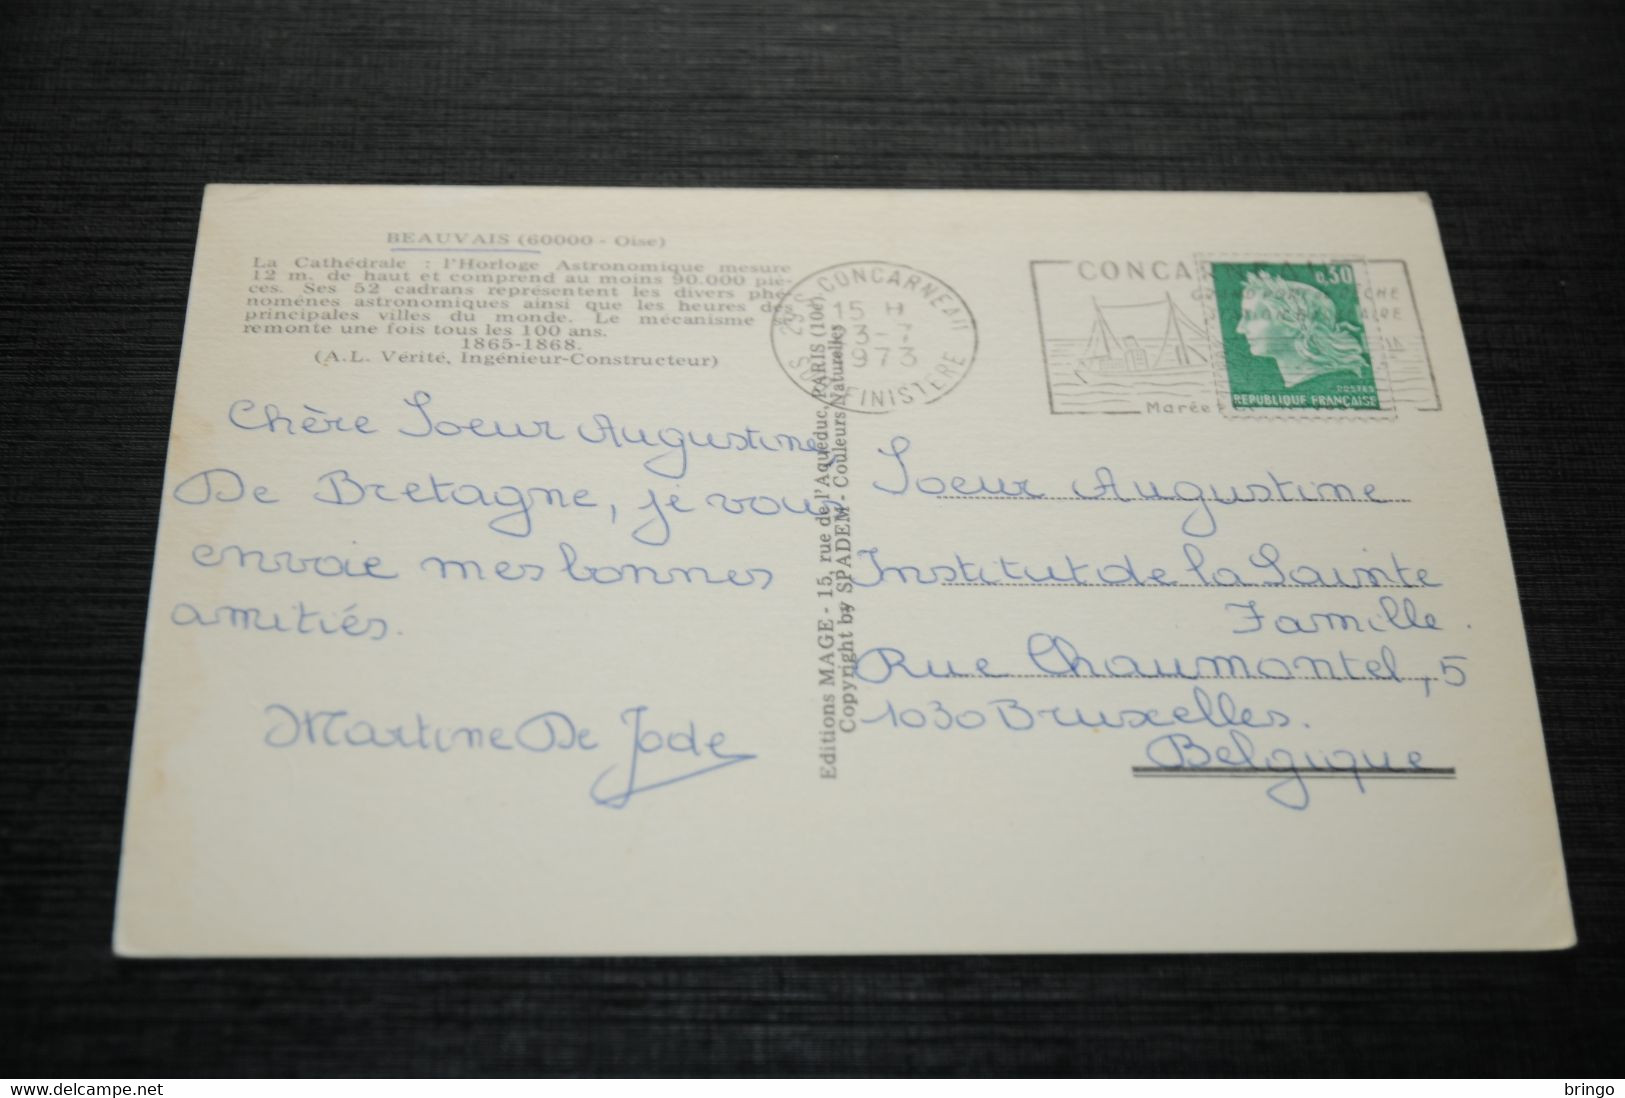 BEAUVAIS (60000 - Oise)
La Cathédrale : l'Horloge Astronomique mesure
12 m. de haut et comprend au moins 90.000 piè-
ces. Ses 52 cadrans représentent les divers phé
nomènes astronomiques ainsi que les heures de
principales villes du monde. Le mécanisme
remonte une fois tous les 100 ans.
1865-1868.
(A.L. Vérité, Ingénieur-Constructeur)
Chère Soeur Augustine,
De Bretagne, je vous
envoie mes bonnes
amitiés.
Martine De Jode
Editions MAGE - 15, rue de l'Aqueduc, PARIS (10e)
Copyright by SPADEM - Couleurs Naturelles
29 S CONCARNEAU
15 H
3 - 7
1973
SUD FINISTERE
CONCA
Marée
0,30
POSTES
REPUBLIQUE FRANÇAISE
Soeur Augustine
Institut de la Sainte
Famille.
Rue Chaumontel, 5
1030 Bruxelles.
Belgique
www.delcampe.net
bringo